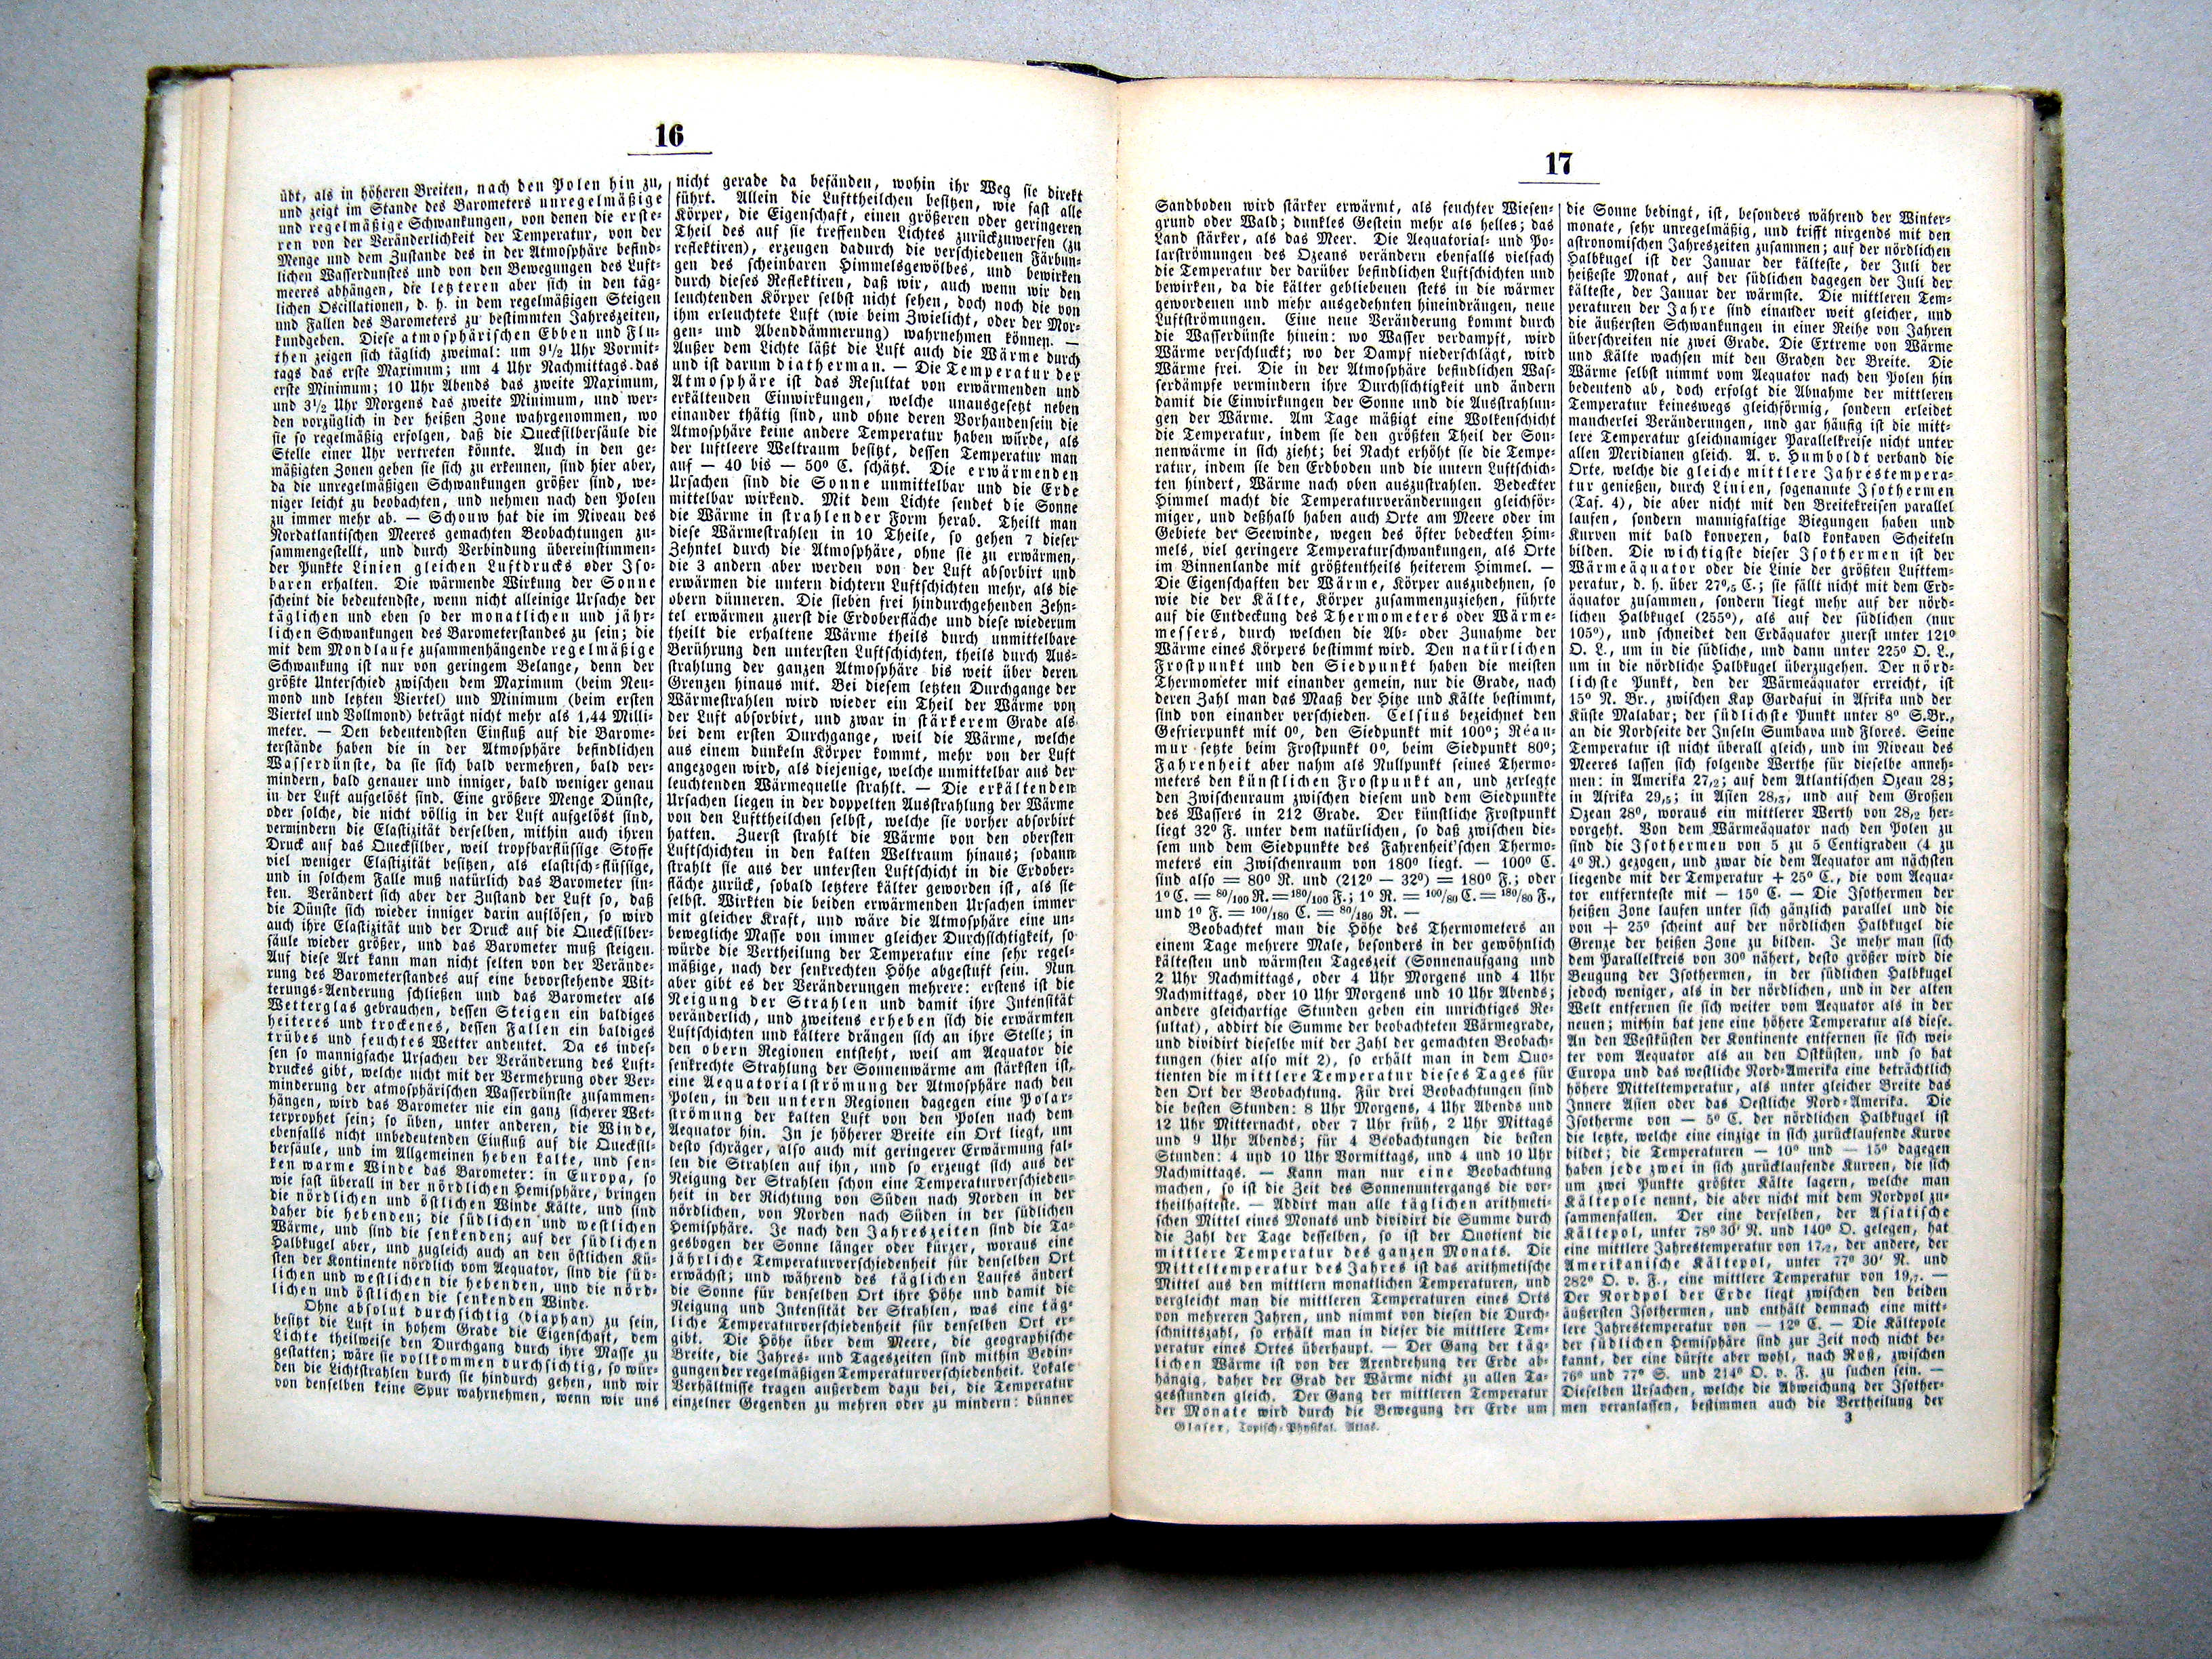 16
übt, als in höheren Breiten, nach den Polen hin zu,
und zeigt im Stande des Barometers unregelmäßige
und regelmäßige Schwankungen, von denen die erste-
ren von der Veränderlichkeit der Temperatur, von der
Menge und dem Zustande des in der Atmosphäre befind-
lichen Wasserdunstes und von den Bewegungen des Luft-
meeres abhängen, die letzteren aber sich in den täg-
lichen Oscillationen, d. h. in dem regelmäßigen Steigen
und Fallen des Barometers zu bestimmten Jahreszeiten,
kundgeben. Diese atmosphärischen Ebben und Flu-
then zeigen sich täglich zweimal: um 9½ Uhr Vormit-
tags das erste Maximum; um 4 Uhr Nachmittags das
erste Minimum; 10 Uhr Abends das zweite Maximum,
und 3½ Uhr Morgens das zweite Minimum, und wer-
den vorzüglich in der heißen Zone wahrgenommen, wo
sie so regelmäßig erfolgen, daß die Quecksilbersäule die
Stelle einer Uhr vertreten könnte. Auch in den ge-
mäßigten Zonen geben sie sich zu erkennen, sind hier aber,
da die unregelmäßigen Schwankungen größer sind, we-
niger leicht zu beobachten, und nehmen nach den Polen
zu immer mehr ab. — Schouw hat die im Niveau des
Nordatlantischen Meeres gemachten Beobachtungen zu-
sammengestellt, und durch Verbindung übereinstimmen-
der Punkte Linien gleichen Luftdrucks oder Iso-
baren erhalten. Die wärmende Wirkung der Sonne
scheint die bedeutendste, wenn nicht alleinige Ursache der
täglichen und eben so der monatlichen und jähr-
lichen Schwankungen des Barometerstandes zu sein; die
mit dem Mondlaufe zusammenhängende regelmäßige
Schwankung ist nur von geringem Belange, denn der
größte Unterschied zwischen dem Maximum (beim Neu-
mond und letzten Viertel) und Minimum (beim ersten
Viertel und Vollmond) beträgt nicht mehr als 1,44 Milli-
meter. — Den bedeutendsten Einfluß auf die Barome-
terstände haben die in der Atmosphäre befindlichen
Wasserdünste, da sie sich bald vermehren, bald ver-
mindern, bald genauer und inniger, bald weniger genau
in der Luft aufgelöst sind. Eine größere Menge Dünste,
oder solche, die nicht völlig in der Luft aufgelöst sind,
vermindern die Elastizität derselben, mithin auch ihren
Druck auf das Quecksilber, weil tropfbarflüssige Stoffe
viel weniger Elastizität besitzen, als elastisch-flüssige,
und in solchem Falle muß natürlich das Barometer sin-
ken. Verändert sich aber der Zustand der Luft so, daß
die Dünste sich wieder inniger darin auflösen, so wird
auch ihre Elastizität und der Druck auf die Quecksilber-
säule wieder größer, und das Barometer muß steigen.
Auf diese Art kann man nicht selten von der Verände-
rung des Barometerstandes auf eine bevorstehende Wit-
terungs-Aenderung schließen und das Barometer als
Wetterglas gebrauchen, dessen Steigen ein baldiges
heiteres und trockenes, dessen Fallen ein baldiges
trübes und feuchtes Wetter andeutet. Da es indes-
sen so mannigfache Ursachen der Veränderung des Luft-
druckes gibt, welche nicht mit der Vermehrung oder Ver-
minderung der atmosphärischen Wasserdünste zusammen-
hängen, wird das Barometer nie ein ganz sicherer Wet-
terprophet sein; so üben, unter anderen, die Winde,
ebenfalls nicht unbedeutenden Einfluß auf die Quecksil-
bersäule, und im Allgemeinen heben kalte, und sen-
ken warme Winde das Barometer: in Europa, so
wie fast überall in der nördlichen Hemisphäre, bringen
die nördlichen und östlichen Winde Kälte, und sind
daher die hebenden; die südlichen und westlichen
Wärme, und sind die senkenden; auf der südlichen
Halbkugel aber, und zugleich auch an den östlichen Kü-
sten der Kontinente nördlich vom Aequator, sind die süd-
lichen und westlichen die hebenden, und die nörd-
lichen und östlichen die senkenden Winde.
Ohne absolut durchsichtig (diaphan) zu sein,
besitzt die Luft in hohem Grade die Eigenschaft, dem
Lichte theilweise den Durchgang durch ihre Masse zu
gestatten; wäre sie vollkommen durchsichtig, so wür-
den die Lichtstrahlen durch sie hindurch gehen, und wir
von denselben keine Spur wahrnehmen, wenn wir uns
nicht gerade da befänden, wohin ihr Weg sie direkt
führt. Allein die Lufttheilchen besitzen, wie fast alle
Körper, die Eigenschaft, einen größeren oder geringeren
Theil des auf sie treffenden Lichtes zurückzuwerfen (zu
reflektiren), erzeugen dadurch die verschiedenen Färbun-
gen des scheinbaren Himmelsgewölbes, und bewirken
durch dieses Reflektiren, daß wir, auch wenn wir den
leuchtenden Körper selbst nicht sehen, doch noch die von
ihm erleuchtete Luft (wie beim Zwielicht, oder der Mor-
gen- und Abenddämmerung) wahrnehmen können. —
Außer dem Lichte läßt die Luft auch die Wärme durch
und ist darum diatherman. — Die Temperatur der
Atmosphäre ist das Resultat von erwärmenden und
erkältenden Einwirkungen, welche unausgesetzt neben
einander thätig sind, und ohne deren Vorhandensein die
Atmosphäre keine andere Temperatur haben würde, als
der luftleere Weltraum besitzt, dessen Temperatur man
auf — 40 bis — 50° C. schätzt. Die erwärmenden
Ursachen sind die Sonne unmittelbar und die Erde
mittelbar wirkend. Mit dem Lichte sendet die Sonne
die Wärme in strahlender Form herab. Theilt man
diese Wärmestrahlen in 10 Theile, so gehen 7 dieser
Zehntel durch die Atmosphäre, ohne sie zu erwärmen,
die 3 andern aber werden von der Luft absorbirt und
erwärmen die untern dichtern Luftschichten mehr, als die
obern dünneren. Die sieben frei hindurchgehenden Zehn-
tel erwärmen zuerst die Erdoberfläche und diese wiederum
theilt die erhaltene Wärme theils durch unmittelbare
Berührung den untersten Luftschichten, theils durch Aus-
strahlung der ganzen Atmosphäre bis weit über deren
Grenzen hinaus mit. Bei diesem letzten Durchgange der
Wärmestrahlen wird wieder ein Theil der Wärme von
der Luft absorbirt, und zwar in stärkerem Grade als
bei dem ersten Durchgange, weil die Wärme, welche
aus einem dunkeln Körper kommt, mehr von der Luft
angezogen wird, als diejenige, welche unmittelbar aus der
leuchtenden Wärmequelle strahlt. — Die erkältenden
Ursachen liegen in der doppelten Ausstrahlung der Wärme
von den Lufttheilchen selbst, welche sie vorher absorbirt
hatten. Zuerst strahlt die Wärme von den obersten
Luftschichten in den kalten Weltraum hinaus; sodann
strahlt sie aus der untersten Luftschicht in die Erdober-
fläche zurück, sobald letztere kälter geworden ist, als sie
selbst. Wirkten die beiden erwärmenden Ursachen immer
mit gleicher Kraft, und wäre die Atmosphäre eine un-
bewegliche Masse von immer gleicher Durchsichtigkeit, so
würde die Vertheilung der Temperatur eine sehr regel-
mäßige, nach der senkrechten Höhe abgestuft sein. Nun
aber gibt es der Veränderungen mehrere: erstens ist die
Neigung der Strahlen und damit ihre Intensität
veränderlich, und zweitens erheben sich die erwärmten
Luftschichten und kältere drängen sich an ihre Stelle; in
den obern Regionen entsteht, weil am Aequator die
senkrechte Strahlung der Sonnenwärme am stärksten ist,
eine Aequatorialströmung der Atmosphäre nach den
Polen, in den untern Regionen dagegen eine Polar-
strömung der kalten Luft von den Polen nach dem
Aequator hin. In je höherer Breite ein Ort liegt, um
desto schräger, also auch mit geringerer Erwärmung fal-
len die Strahlen auf ihn, und so erzeugt sich aus der
Neigung der Strahlen schon eine Temperaturverschieden-
heit in der Richtung von Süden nach Norden in der
nördlichen, von Norden nach Süden in der südlichen
Hemisphäre. Je nach den Jahreszeiten sind die Ta-
gesbogen der Sonne länger oder kürzer, woraus eine
jährliche Temperaturverschiedenheit für denselben Ort
erwächst; und während des täglichen Laufes ändert
die Sonne für denselben Ort ihre Höhe und damit die
Neigung und Intensität der Strahlen, was eine täg-
liche Temperaturverschiedenheit für denselben Ort er-
gibt. Die Höhe über dem Meere, die geographische
Breite, die Jahres- und Tageszeiten sind mithin Bedin-
gungen der regelmäßigen Temperaturverschiedenheit. Lokale
Verhältnisse tragen außerdem dazu bei, die Temperatur
einzelner Gegenden zu mehren oder zu mindern: dünner
17
Sandboden wird stärker erwärmt, als feuchter Wiesen-
grund oder Wald; dunkles Gestein mehr als helles; das
Land stärker, als das Meer. Die Aequatorial- und Po-
larströmungen des Ozeans verändern ebenfalls vielfach
die Temperatur der darüber befindlichen Luftschichten und
bewirken, da die kälter gebliebenen stets in die wärmer
gewordenen und mehr ausgedehnten hineindrängen, neue
Luftströmungen. Eine neue Veränderung kommt durch
die Wasserdünste hinein: wo Wasser verdampft, wird
Wärme verschluckt; wo der Dampf niederschlägt, wird
Wärme frei. Die in der Atmosphäre befindlichen Was-
serdämpfe vermindern ihre Durchsichtigkeit und ändern
damit die Einwirkungen der Sonne und die Ausstrahlun-
gen der Wärme. Am Tage mäßigt eine Wolkenschicht
die Temperatur, indem sie den größten Theil der Son-
nenwärme in sich zieht; bei Nacht erhöht sie die Tempe-
ratur, indem sie den Erdboden und die untern Luftschich-
ten hindert, Wärme nach oben auszustrahlen. Bedeckter
Himmel macht die Temperaturveränderungen gleichför-
miger, und deßhalb haben auch Orte am Meere oder im
Gebiete der Seewinde, wegen des öfter bedeckten Him-
mels, viel geringere Temperaturschwankungen, als Orte
im Binnenlande mit größtentheils heiterem Himmel. —
Die Eigenschaften der Wärme, Körper auszudehnen, so
wie die der Kälte, Körper zusammenzuziehen, führte
auf die Entdeckung des Thermometers oder Wärme-
messers, durch welchen die Ab- oder Zunahme der
Wärme eines Körpers bestimmt wird. Den natürlichen
Frostpunkt und den Siedpunkt haben die meisten
Thermometer mit einander gemein, nur die Grade, nach
deren Zahl man das Maaß der Hitze und Kälte bestimmt,
sind von einander verschieden. Celsius bezeichnet den
Gefrierpunkt mit 0°, den Siedpunkt mit 100°; Réau-
mur setzte beim Frostpunkt 0°, beim Siedpunkt 80°;
Fahrenheit aber nahm als Nullpunkt seines Thermo-
meters den künstlichen Frostpunkt an, und zerlegte
den Zwischenraum zwischen diesem und dem Siedpunkte
des Wassers in 212 Grade. Der künstliche Frostpunkt
liegt 32° F. unter dem natürlichen, so daß zwischen die-
sem und dem Siedpunkte des Fahrenheit'schen Thermo-
meters ein Zwischenraum von 180° liegt. — 100° C.
sind also = 80° R. und (212° — 32°) = 180° F.; oder
1° C. = 80/100 R. = 180/100 F.; 1° R. = 100/80 C. = 180/80 F.,
und 1° F. = 100/180 C. = 80/180 R. —
Beobachtet man die Höhe des Thermometers an
einem Tage mehrere Male, besonders in der gewöhnlich
kältesten und wärmsten Tageszeit (Sonnenaufgang und
2 Uhr Nachmittags, oder 4 Uhr Morgens und 4 Uhr
Nachmittags, oder 10 Uhr Morgens und 10 Uhr Abends;
andere gleichartige Stunden geben ein unrichtiges Re-
sultat), addirt die Summe der beobachteten Wärmegrade,
und dividirt dieselbe mit der Zahl der gemachten Beobach-
tungen (hier also mit 2), so erhält man in dem Quo-
tienten die mittlere Temperatur dieses Tages für
den Ort der Beobachtung. Für drei Beobachtungen sind
die besten Stunden: 8 Uhr Morgens, 4 Uhr Abends und
12 Uhr Mitternacht, oder 7 Uhr früh, 2 Uhr Mittags
und 9 Uhr Abends; für 4 Beobachtungen die besten
Stunden: 4 und 10 Uhr Vormittags, und 4 und 10 Uhr
Nachmittags. — Kann man nur eine Beobachtung
machen, so ist die Zeit des Sonnenuntergangs die vor-
theilhafteste. — Addirt man alle täglichen arithmeti-
schen Mittel eines Monats und dividirt die Summe durch
die Zahl der Tage desselben, so ist der Quotient die
mittlere Temperatur des ganzen Monats. Die
Mitteltemperatur des Jahres ist das arithmetische
Mittel aus den mittlern monatlichen Temperaturen, und
vergleicht man die mittleren Temperaturen eines Orts
von mehreren Jahren, und nimmt von diesen die Durch-
schnittszahl, so erhält man in dieser die mittlere Tem-
peratur eines Ortes überhaupt. — Der Gang der täg-
lichen Wärme ist von der Axendrehung der Erde ab-
hängig, daher der Grad der Wärme nicht zu allen Ta-
gesstunden gleich. Der Gang der mittleren Temperatur
der Monate wird durch die Bewegung der Erde um
die Sonne bedingt, ist, besonders während der Winter-
monate, sehr unregelmäßig, und trifft nirgends mit den
astronomischen Jahreszeiten zusammen; auf der nördlichen
Halbkugel ist der Januar der kälteste, der Juli der
heißeste Monat, auf der südlichen dagegen der Juli der
kälteste, der Januar der wärmste. Die mittleren Tem-
peraturen der Jahre sind einander weit gleicher, und
die äußersten Schwankungen in einer Reihe von Jahren
überschreiten nie zwei Grade. Die Extreme von Wärme
und Kälte wachsen mit den Graden der Breite. Die
Wärme selbst nimmt vom Aequator nach den Polen hin
bedeutend ab, doch erfolgt die Abnahme der mittleren
Temperatur keineswegs gleichförmig, sondern erleidet
mancherlei Veränderungen, und gar häufig ist die mitt-
lere Temperatur gleichnamiger Parallelkreise nicht unter
allen Meridianen gleich. A. v. Humboldt verband die
Orte, welche die gleiche mittlere Jahrestempera-
tur genießen, durch Linien, sogenannte Isothermen
(Taf. 4), die aber nicht mit den Breitekreisen parallel
laufen, sondern mannigfaltige Biegungen haben und
Kurven mit bald konvexen, bald konkaven Scheiteln
bilden. Die wichtigste dieser Isothermen ist der
Wärmeäquator oder die Linie der größten Lufttem-
peratur, d. h. über 27°,5 C.; sie fällt nicht mit dem Erd-
äquator zusammen, sondern liegt mehr auf der nörd-
lichen Halbkugel (255°), als auf der südlichen (nur
105°), und schneidet den Erdäquator zuerst unter 121°
O. L., um in die südliche, und dann unter 225° O. L.,
um in die nördliche Halbkugel überzugehen. Der nörd-
lichste Punkt, den der Wärmeäquator erreicht, ist
15° N. Br., zwischen Kap Gardafui in Afrika und der
Küste Malabar; der südlichste Punkt unter 8° S.Br.,
an die Nordseite der Inseln Sumbava und Flores. Seine
Temperatur ist nicht überall gleich, und im Niveau des
Meeres lassen sich folgende Werthe für dieselbe anneh-
men: in Amerika 27,2; auf dem Atlantischen Ozean 28;
in Afrika 29,5; in Asien 28,3, und auf dem Großen
Ozean 28°, woraus ein mittlerer Werth von 28,2 her-
vorgeht. Von dem Wärmeäquator nach den Polen zu
sind die Isothermen von 5 zu 5 Centigraden (4 zu
4° R.) gezogen, und zwar die dem Aequator am nächsten
liegende mit der Temperatur + 25° C., die vom Aequa-
tor entfernteste mit — 15° C. — Die Isothermen der
heißen Zone laufen unter sich gänzlich parallel und die
von + 25° scheint auf der nördlichen Halbkugel die
Grenze der heißen Zone zu bilden. Je mehr man sich
dem Parallelkreis von 30° nähert, desto größer wird die
Beugung der Isothermen, in der südlichen Halbkugel
jedoch weniger, als in der nördlichen, und in der alten
Welt entfernen sie sich weiter vom Aequator als in der
neuen; mithin hat jene eine höhere Temperatur als diese.
An den Westküsten der Kontinente entfernen sie sich wei-
ter vom Aequator als an den Ostküsten, und so hat
Europa und das westliche Nord-Amerika eine beträchtlich
höhere Mitteltemperatur, als unter gleicher Breite das
Innere Asien oder das Oestliche Nord-Amerika. Die
Isotherme von — 5° C. der nördlichen Halbkugel ist
die letzte, welche eine einzige in sich zurücklaufende Kurve
bildet; die Temperaturen — 10° und — 15° dagegen
haben jede zwei in sich zurücklaufende Kurven, die sich
um zwei Punkte größter Kälte lagern, welche man
Kältepole nennt, die aber nicht mit dem Nordpol zu-
sammenfallen. Der eine derselben, der Asiatische
Kältepol, unter 78° 30' N. und 140° O. gelegen, hat
eine mittlere Jahrestemperatur von 17,2, der andere, der
Amerikanische Kältepol, unter 77° 30' N. und
282° O. v. F., eine mittlere Temperatur von 19,7. —
Der Nordpol der Erde liegt zwischen den beiden
äußersten Isothermen, und enthält demnach eine mitt-
lere Jahrestemperatur von — 12° C. — Die Kältepole
der südlichen Hemisphäre sind zur Zeit noch nicht be-
kannt, der eine dürfte aber wohl, nach Roß, zwischen
76° und 77° S. und 214° O. v. F. zu suchen sein. —
Dieselben Ursachen, welche die Abweichung der Isother-
men veranlassen, bestimmen auch die Vertheilung der
Glaser, Topisch-Physikal. Atlas.
3